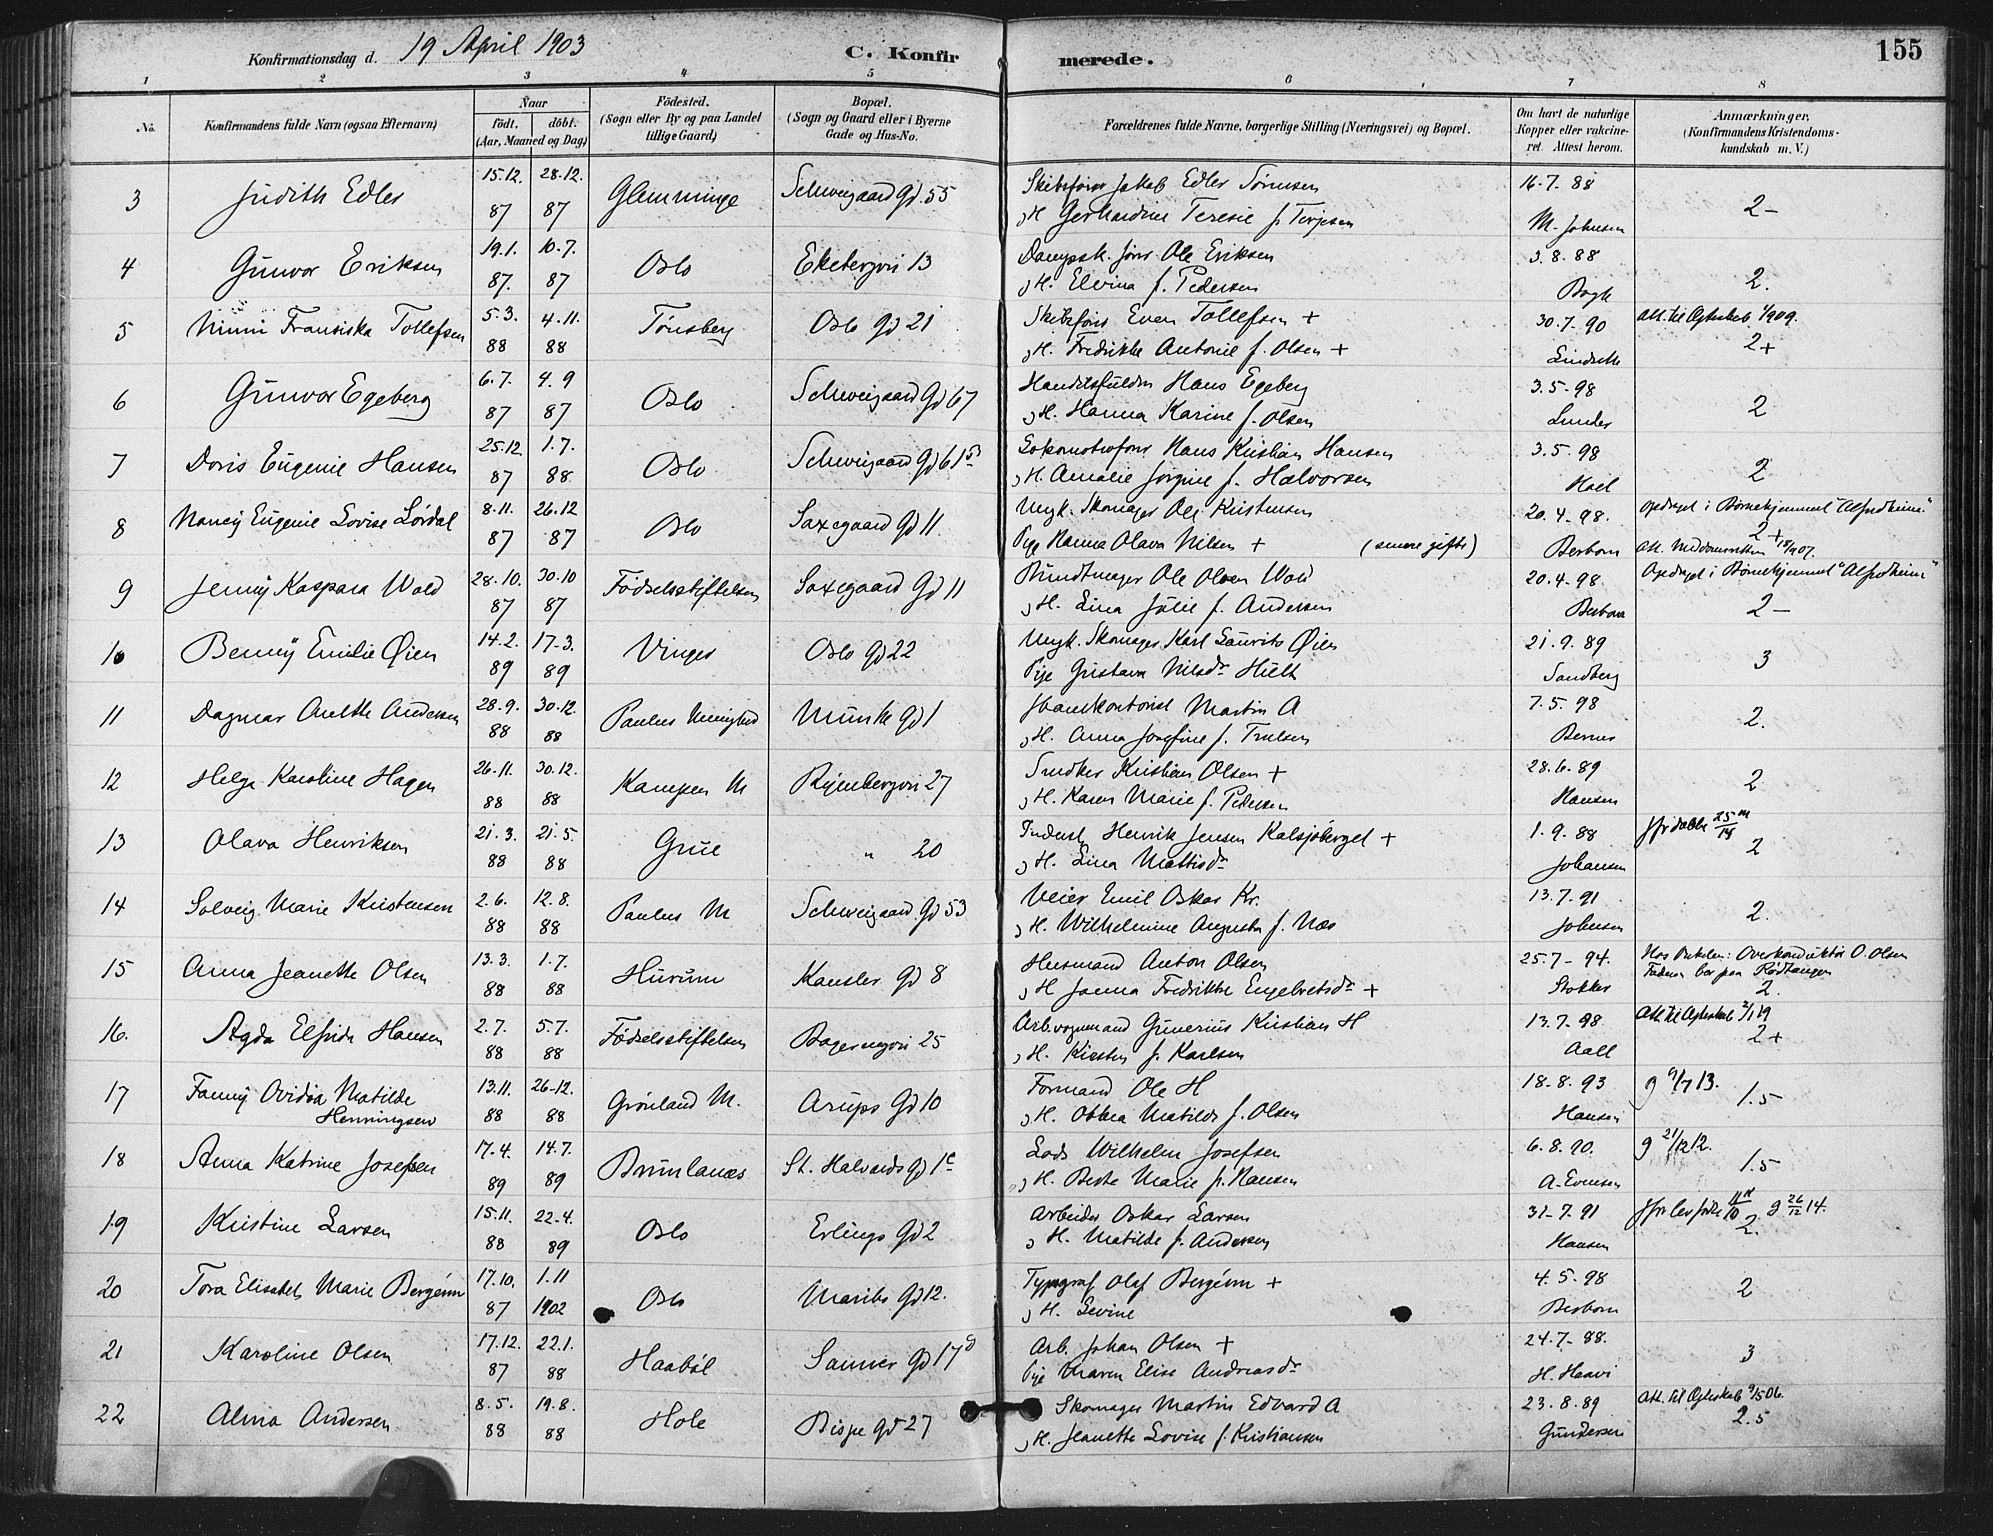 155
Konfirmationsdag d. 19 April 1903 C. Konfirmerede.
1 2 3 4 5 6 7 8
No. Konfirmandens fulde Navn (ogsaa Efternavn) Naar født. døbt. (Aar, Maaned og Dag) Fødested. (Sogn eller By og paa Landet tillige Gaard) Bopæl. (Sogn og Gaard eller i Byerne Gade og Hus-No. Forældrenes fulde Navne, borgerlige Stilling (Næringsvei) og Bopæl. Om havt de naturlige Kopper eller vakcineret. Attest herom. Anmærkninger. (Konfirmandens Kristendomskundskab m. V.)
3 Judith Edler 15.12. 28.12. Glemminge Schweigaard Gd. 55 Skibsfører Jakob Edler Sørensen 16.7.88
87 87 H Gerhardine Teresie f. Terjesen M. Johnsen 2-
4 Gunvor Eriksen 19.1. 10.7. Oslo Ekebergvei 13 Ole Eriksen 3.8.88
87. 87 H. Elvina f. Pedersen 2.
5 Franziska Tollefsen 5.3. 4.11. Tønsberg Oslo Gd 21 Skibsfører Even Tollefsen + 30.7.90 Att. til Ægteskab 1909.
88 88 H. Fredrikke Antonie f. Olsen + 2+
6 Gunvor Egeberg 6.7. 4.9 Oslo Schweigaard Gd 67 Hans Egeberg 3.5-98
87 87 H. Hanna Karine f. Olsen Lunder 2
7 Doris Eugenie Hansen 25.12. 1.7. Oslo Schweigaard Gd 61 Hans Kristian Hansen 3.5.98
87 88. H. Amalie Jørgine f. Halvorsen 2
8 Nancy Eugenie Lovise Lørdal 8.11. 26.12 Oslo Saxegaard Gd 11. Ungk. Skomager Ole Kristensen 20.4-98. opdraget i Børnehjemmet "Alfredheim"
87 87 Pige Hanna Olava Nilsen + (senere gifte) Berbom 2+
9 Jenny Kaspara Wold 28.10. 30.10 Fødselsstiftelsen Saxegaard Gd 11 Bundtmager Ole Olsen Wold 20.4-98. Opdraget i Børnehjemmet "Alfredheim"
87 87 H. Lina Julie f. Andersen Berbom 2-
10 Benny Emilie Øien 14.2. 17-3. Vinger Oslo Gd 22 Ungk. Skomager Karl Laurits Øien 21.9.89
89 89 Pige Gustava Nilsdr Hult Sandberg 3
11 Dagmar Anette Andersen 28.9. 30.12. Paulus Munkegd 1 Martin A 7.5.98
88 88 H. Anna Josefine f. Trulsen Berner 2.
12 Helga Karoline Hagen 26.11. 30.12. Kampen M Ryenbergvei 27 Snedker Kristian Olsen + 28.6.89
88 88 H. Karen Marie f. Pedersen Hansen 2
13 Olava Henriksen 21.3. 21.5. Grue " 20 Inderst Henrik Jensen Kalsjøberget + 1.9.88
88 88 H. Lina Mattisdr Johansen 2
14 Solveig Marie Kristensen 2.6. 12.8. Paulus M Schweigaard Gd 53 Veier Emil Oskar Kr. 13.7.91
88 88 H. Wilhelmine Augusta f. Næs Johnsen 2.
15 Anna Jeanette Olsen 13.3. 1.7. Hurum Kansler Gd 8 Husmand Anton Olsen 25.7-94. Hos Onkelen: Overkonduktør O. Olsen
88 88 H Janna Fredrikke Engebretsdr + Stokker Faderen bor paa Rødtangen 2.
16. Agda Elfrida Hansen 2.7. 5.7. Fødselsstiftelsen 25 Arb. vognmand Gunerius Kristian H 13.7-98. Att. til Ægteskab 2/1 19
88 88 H. Kirsten f. Karlsen Aall 2+
17 Fanny Ovidia Matilde Henningsen 13.11. 26-12. Grønland M. Arups Gd 10 Formand Ole H 18.8.93 g 9/7 13.
88 88 H. Obbea Matilde f. Olsen Hansen 1.5
18 Anna Katrine Josefsen 17.4. 14.7. Brunlanes St. Halvards Gd 1c Lods Wilhelm Josefsen 6.8.90. g 21/12 12.
89 89 H. Berte Marie f. Hansen A. Evensen 1.5
19 Kristine Larsen 15.11. 22.4. Oslo Erlings Gd 2 Arbeider Oskar Larsen 31-7.91 g 26/12 14.
88 89 H. Matilde f. Andersen Hansen 2.
20 Tora Elisabet Marie Bergén 17.10. 1.11 Oslo Maribo Gd 12. Typograf Olaf + 4.5-98
87 1902 H. Levine Berbom 2
21 Karoline Olsen 17.12. 22.1. Haabøl Sanner Gd 17 Arb. Johan Olsen + 24.7-88.
87 88 Pige Maren Elise Andreasdr H. Haavi 3
22 Alma Andersen 8.5. 19.8. Hole Bispe Gd 27 Skomager Martin Edvard A 23.8.89 Att. til Ægteskab 9/5 06.
88 88 H. Jeanette Lovise f. Kristiansen Gundersen 2.5